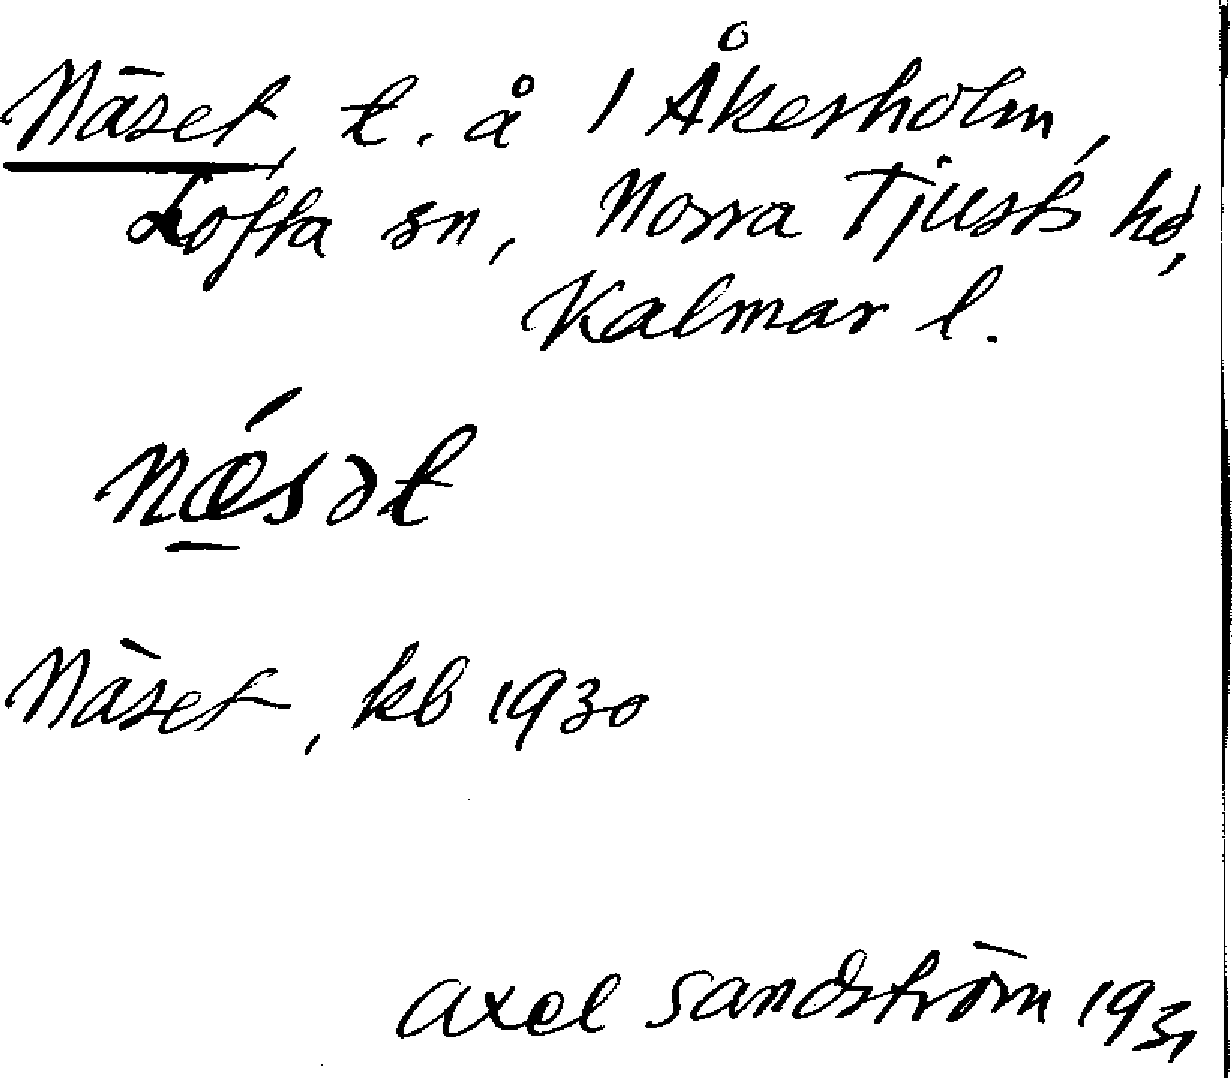 Näset, t. å 1 Åkerholm,
Lofta sn, Norra Tjusts hd,
Kalmar l.
nǽ̲sət
Näset, kb 1930
Axel Sandström 1931